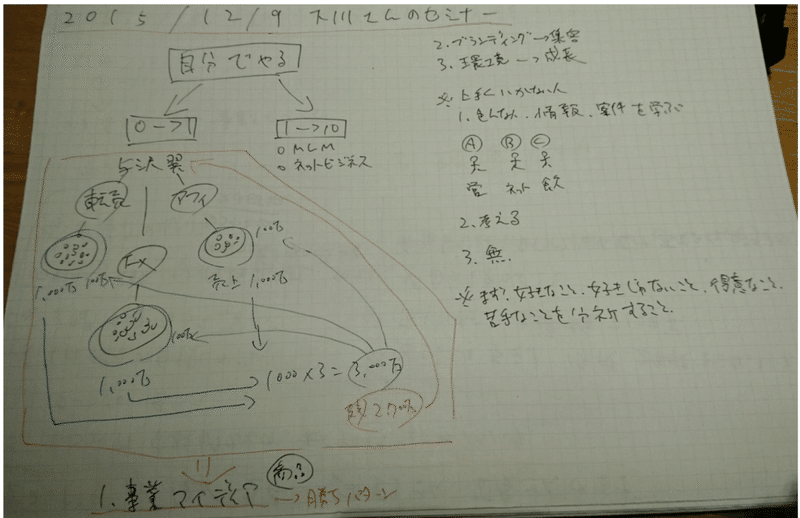 2015/12/9 大川さんのセミナー
自分でやる
0→1
1→10
○ MLM
○ ネットビジネス
与沢翼
転売
アフィ
FX
1,000万
100万
100万
売上 1,000万
100万
1,000万
1000×3=3,000万
残2,700万
1. 事業アイディア→勝ちパターン
商品
2. ブランディング→集客
3. 環境→成長
※上手くいかない人
1. 色んな人、情報、案件を学ぶ
Ⓐ Ⓑ Ⓒ
ネット 飲
2. 考える
3. 無
※まず、好きなこと、好きじゃないこと、得意なこと、
苦手なことを分析すること